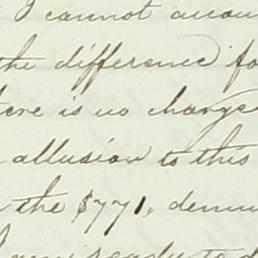 I cannot accou
the difference fo
ere is no charge
allusion to this
the $771, demu